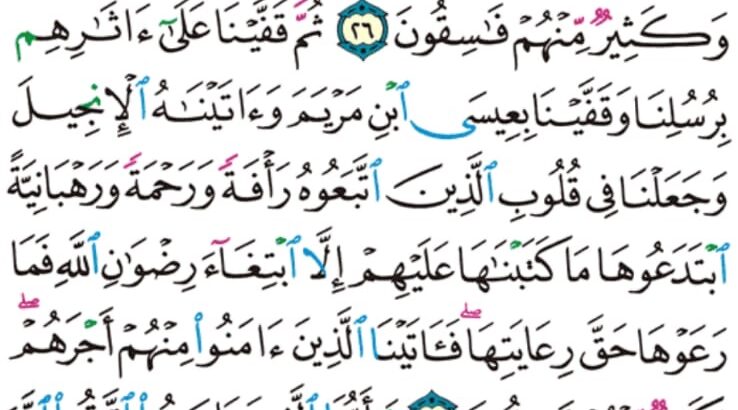 وَكَثِيرٌ مِّنْهُمْ فَـٰسِقُونَ ٢٦ ثُمَّ قَفَّيْنَا عَلَىٰٓ ءَاثَـٰرِهِم
بِرُسُلِنَا وَقَفَّيْنَا بِعِيسَى ٱبْنِ مَرْيَمَ وَءَاتَيْنَـٰهُ ٱلْإِنجِيلَ
وَجَعَلْنَا فِى قُلُوبِ ٱلَّذِينَ ٱتَّبَعُوهُ رَأْفَةً وَرَحْمَةً وَرَهْبَانِيَّةً
ٱبْتَدَعُوهَا مَا كَتَبْنَـٰهَا عَلَيْهِمْ إِلَّا ٱبْتِغَآءَ رِضْوَٰنِ ٱللَّهِ فَمَا
رَعَوْهَا حَقَّ رِعَايَتِهَا ۖ فَـَٔاتَيْنَا ٱلَّذِينَ ءَامَنُوا۟ مِنْهُمْ أَجْرَهُمْ ۖ